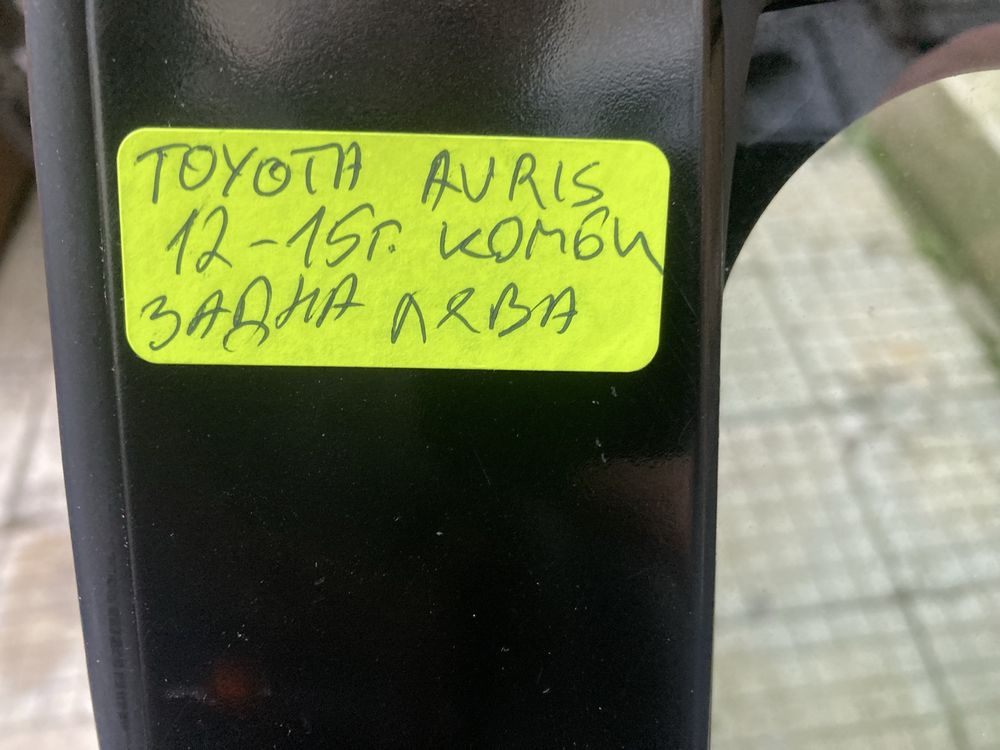 TOYOTA AURIS
12-15г. КОМБИ
ЗАДНА ЛЯВА